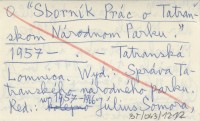 "Sborník Prác o Tatran-
skom Národnom Parku."
1957 - . - Tatranská
Lomnica. Wyd. Správa Ta-
transkeho národneho parku.
Red. Július Somora.